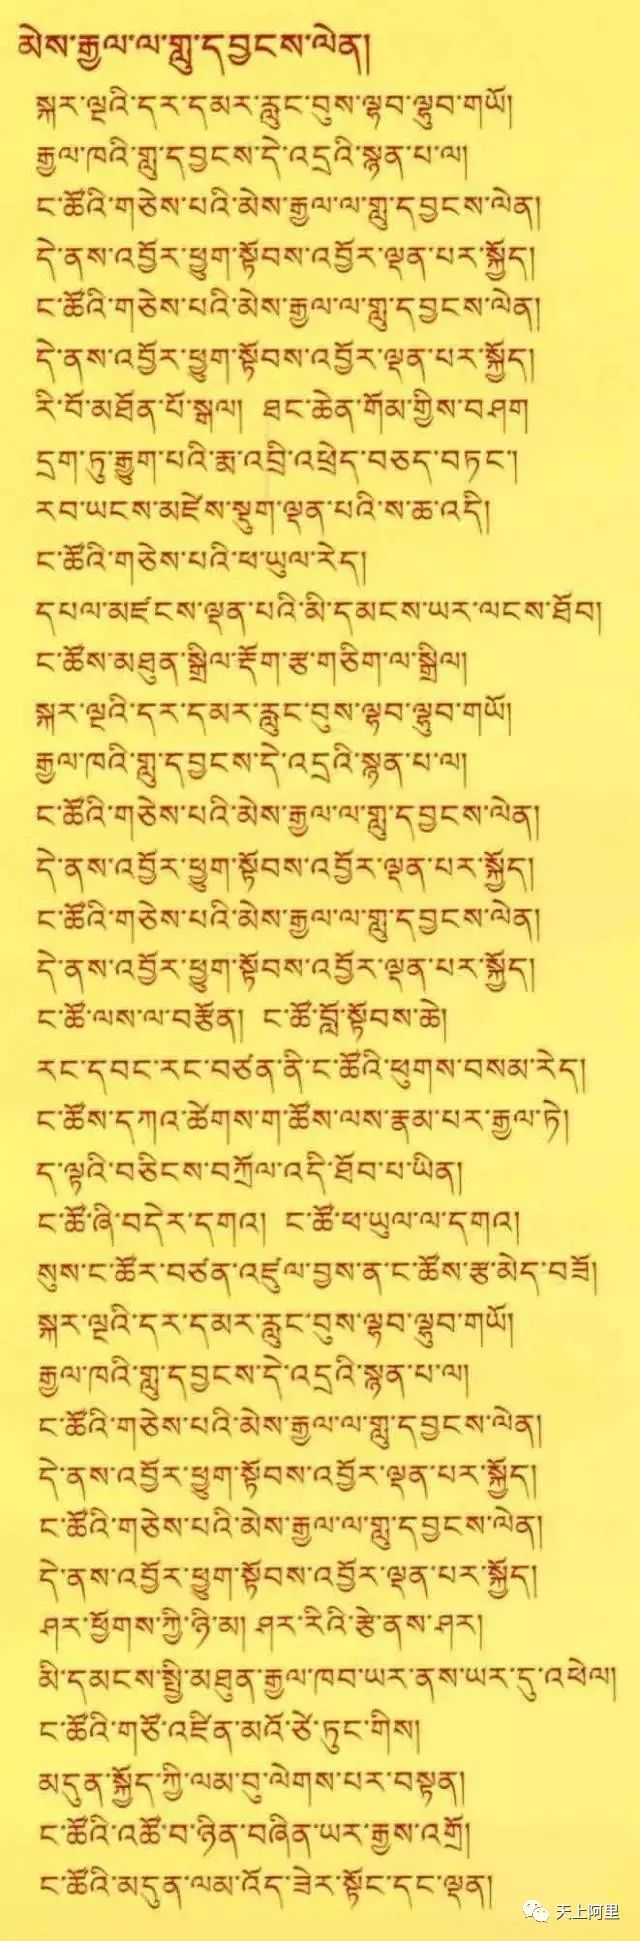 མེས་རྒྱལ་ལ་གླུ་དབྱངས་ལེན།
སྐར་ལྔའི་དར་དམར་རླུང་བུས་ལྷབ་ལྷུབ་གཡོ།
རྒྱལ་ཁའི་གླུ་དབྱངས་དེ་འདྲའི་སྙན་པ་ལ།
ང་ཚོའི་གཅེས་པའི་མེས་རྒྱལ་ལ་གླུ་དབྱངས་ལེན།
དེ་ནས་འབྱོར་ཕྱུག་སྟོབས་འབྱོར་ལྡན་པར་སྐྱོད།
ང་ཚོའི་གཅེས་པའི་མེས་རྒྱལ་ལ་གླུ་དབྱངས་ལེན།
དེ་ནས་འབྱོར་ཕྱུག་སྟོབས་འབྱོར་ལྡན་པར་སྐྱོད།
རི་བོ་མཐོན་པོ་སྒལ། ཐང་ཆེན་གོམ་གྱིས་བཤག
དྲག་ཏུ་རྒྱུག་པའི་རྨ་འབྲི་འཕྲེད་བཅད་བཏང་།
རབ་ཡངས་མཛེས་སྡུག་ལྡན་པའི་ས་ཆ་འདི།
ང་ཚོའི་གཅེས་པའི་ཕ་ཡུལ་རེད།
དཔལ་མཛངས་ལྡན་པའི་མི་དམངས་ཡར་ལངས་ཐོབ།
ང་ཚོས་མཐུན་སྒྲིལ་རྡོག་རྩ་གཅིག་ལ་སྒྲིལ།
སྐར་ལྔའི་དར་དམར་རླུང་བུས་ལྷབ་ལྷུབ་གཡོ།
རྒྱལ་ཁའི་གླུ་དབྱངས་དེ་འདྲའི་སྙན་པ་ལ།
ང་ཚོའི་གཅེས་པའི་མེས་རྒྱལ་ལ་གླུ་དབྱངས་ལེན།
དེ་ནས་འབྱོར་ཕྱུག་སྟོབས་འབྱོར་ལྡན་པར་སྐྱོད།
ང་ཚོའི་གཅེས་པའི་མེས་རྒྱལ་ལ་གླུ་དབྱངས་ལེན།
དེ་ནས་འབྱོར་ཕྱུག་སྟོབས་འབྱོར་ལྡན་པར་སྐྱོད།
ང་ཚོ་ལས་ལ་བརྩོན། ང་ཚོ་བློ་སྟོབས་ཆེ།
རང་དབང་རང་བཙན་ནི་ང་ཚོའི་ཕུགས་བསམ་རེད།
ང་ཚོས་དཀའ་ཚེགས་ག་ཚོས་ལས་རྣམ་པར་རྒྱལ་ཏེ།
ད་ལྟའི་བཅིངས་བཀྲོལ་འདི་ཐོབ་པ་ཡིན།
ང་ཚོ་ཞི་བདེར་དགའ། ང་ཚོ་ཕ་ཡུལ་ལ་དགའ།
སུས་ང་ཚོར་བཙན་འཛུལ་བྱས་ན་ང་ཚོས་རྩ་མེད་བཟོ།
སྐར་ལྔའི་དར་དམར་རླུང་བུས་ལྷབ་ལྷུབ་གཡོ།
རྒྱལ་ཁའི་གླུ་དབྱངས་དེ་འདྲའི་སྙན་པ་ལ།
ང་ཚོའི་གཅེས་པའི་མེས་རྒྱལ་ལ་གླུ་དབྱངས་ལེན།
དེ་ནས་འབྱོར་ཕྱུག་སྟོབས་འབྱོར་ལྡན་པར་སྐྱོད།
ང་ཚོའི་གཅེས་པའི་མེས་རྒྱལ་ལ་གླུ་དབྱངས་ལེན།
དེ་ནས་འབྱོར་ཕྱུག་སྟོབས་འབྱོར་ལྡན་པར་སྐྱོད།
ཤར་ཕྱོགས་ཀྱི་ཉི་མ། ཤར་རིའི་རྩེ་ནས་ཤར།
མི་དམངས་སྤྱི་མཐུན་རྒྱལ་ཁབ་ཡར་ནས་ཡར་དུ་འཕེལ།
ང་ཚོའི་གཙོ་འཛིན་མའོ་ཙེ་ཏུང་གིས།
མདུན་སྐྱོད་ཀྱི་ལམ་བུ་ལེགས་པར་བསྟན།
ང་ཚོའི་འཚོ་བ་ཉིན་བཞིན་ཡར་རྒྱས་འགྲོ།
ང་ཚོའི་མདུན་ལམ་འོད་ཟེར་སྟོང་དང་ལྡན།
天上阿里